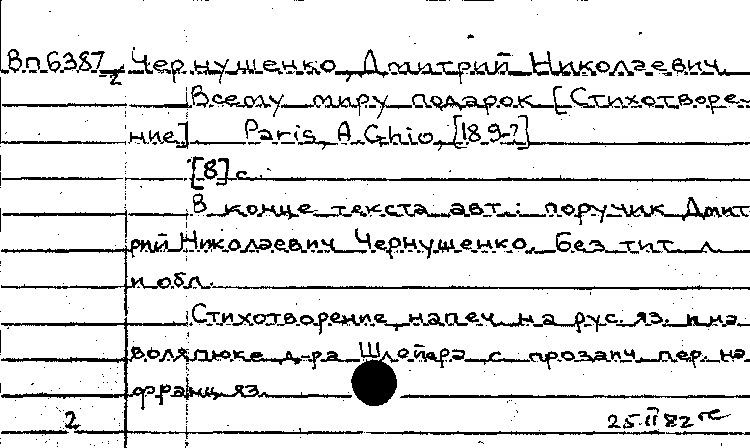 Вп6387 Чернушенко, Дмитрий Николаевич.
2
Всему миру подарок [Стихотворе-
ние]. Paris, A. Ghio, [189-?]
[8] с.
В конце текста авт.: поручик Дмит
рий Николаевич Чернушенко. Без тит. л.
и обл.
Стихотворение напеч. на рус. яз. и на
волапюке д-ра Шлейера с прозаич. пер. на
франц. яз.
2 25.II 82